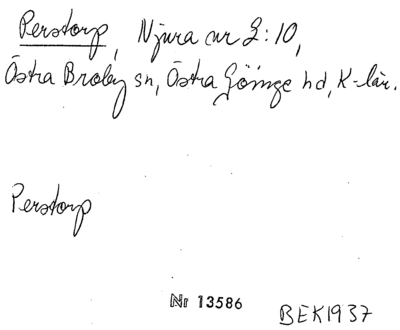 Perstorp, Njura nr 2:10,
Östra Broby sn, Östra Göinge hd, K-län.
Perstorp
Nr 13586
BEK1937